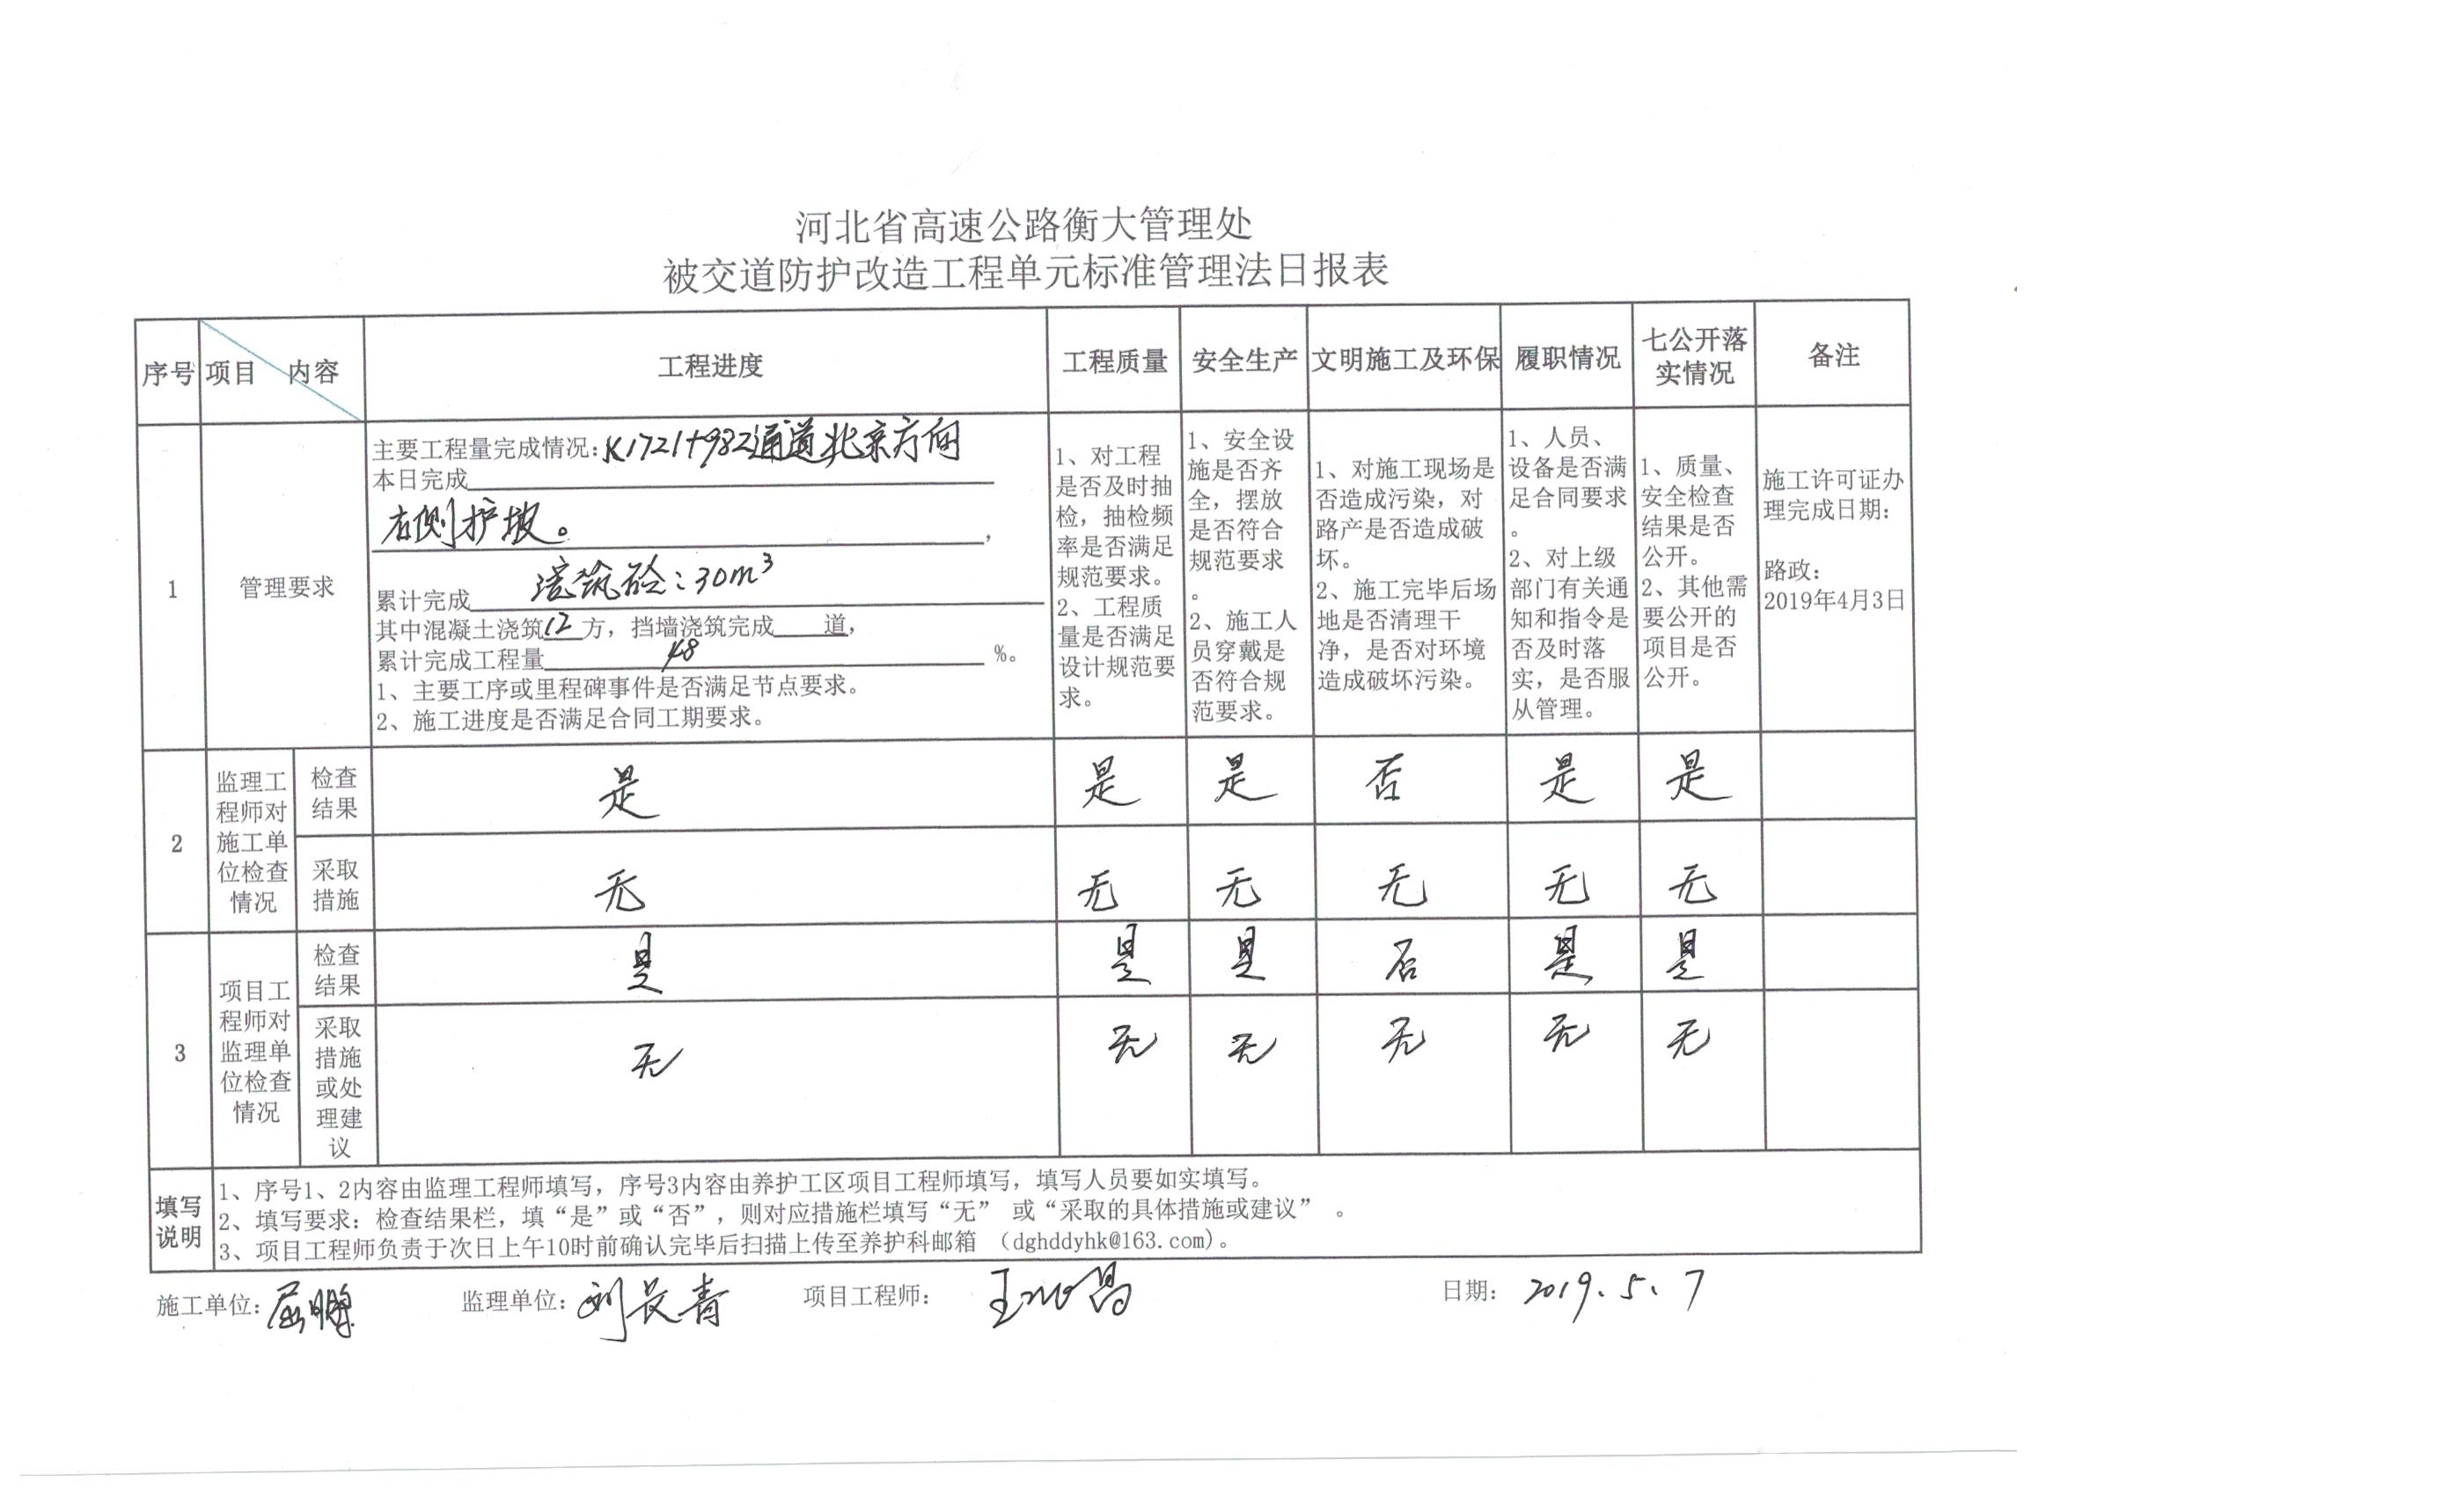 河北省高速公路衡大管理处
被交道防护改造工程单元标准管理法日报表
序号 项目 内容 工程进度 工程质量 安全生产 文明施工及环保 履职情况 七公开落
实情况 备注
1 管理要求
主要工程量完成情况：K1721+982通道北京方向
本日完成
右侧护坡。，
累计完成 浇筑砼：30m³
其中混凝土浇筑12方，挡墙浇筑完成 道，
累计完成工程量 %。
1、主要工序或里程碑事件是否满足节点要求。
2、施工进度是否满足合同工期要求。
1、对工程
是否及时抽
检，抽检频
率是否满足
规范要求。
2、工程质
量是否满足
设计规范要
求。
1、安全设
施是否齐
全，摆放
是否符合
规范要求
。
2、施工人
员穿戴是
否符合规
范要求。
1、对施工现场是
否造成污染，对
路产是否造成破
坏。
2、施工完毕后场
地是否清理干
净，是否对环境
造成破坏污染。
1、人员、
设备是否满
足合同要求
。
2、对上级
部门有关通
知和指令是
否及时落
实，是否服
从管理。
1、质量、
安全检查
结果是否
公开。
2、其他需
要公开的
项目是否
公开。
施工许可证办
理完成日期：
路政：
2019年4月3日
2
监理工
程师对
施工单
位检查
情况
检查
结果
是 是 是 否 是 是
采取
措施
无 无 无 无 无 无
3
项目工
程师对
监理单
位检查
情况
检查
结果
是 是 是 否 是 是
采取
措施
或处
理建
议
无 无 无 无 无 无
填写
说明
1、序号1、2内容由监理工程师填写，序号3内容由养护工区项目工程师填写，填写人员要如实填写。
2、填写要求：检查结果栏，填“是”或“否”，则对应措施栏填写“无” 或“采取的具体措施或建议” 。
3、项目工程师负责于次日上午10时前确认完毕后扫描上传至养护科邮箱 （dghddyhk@163.com)。
施工单位：屈鹏 监理单位：刘长青 项目工程师： 日期：2019.5.7